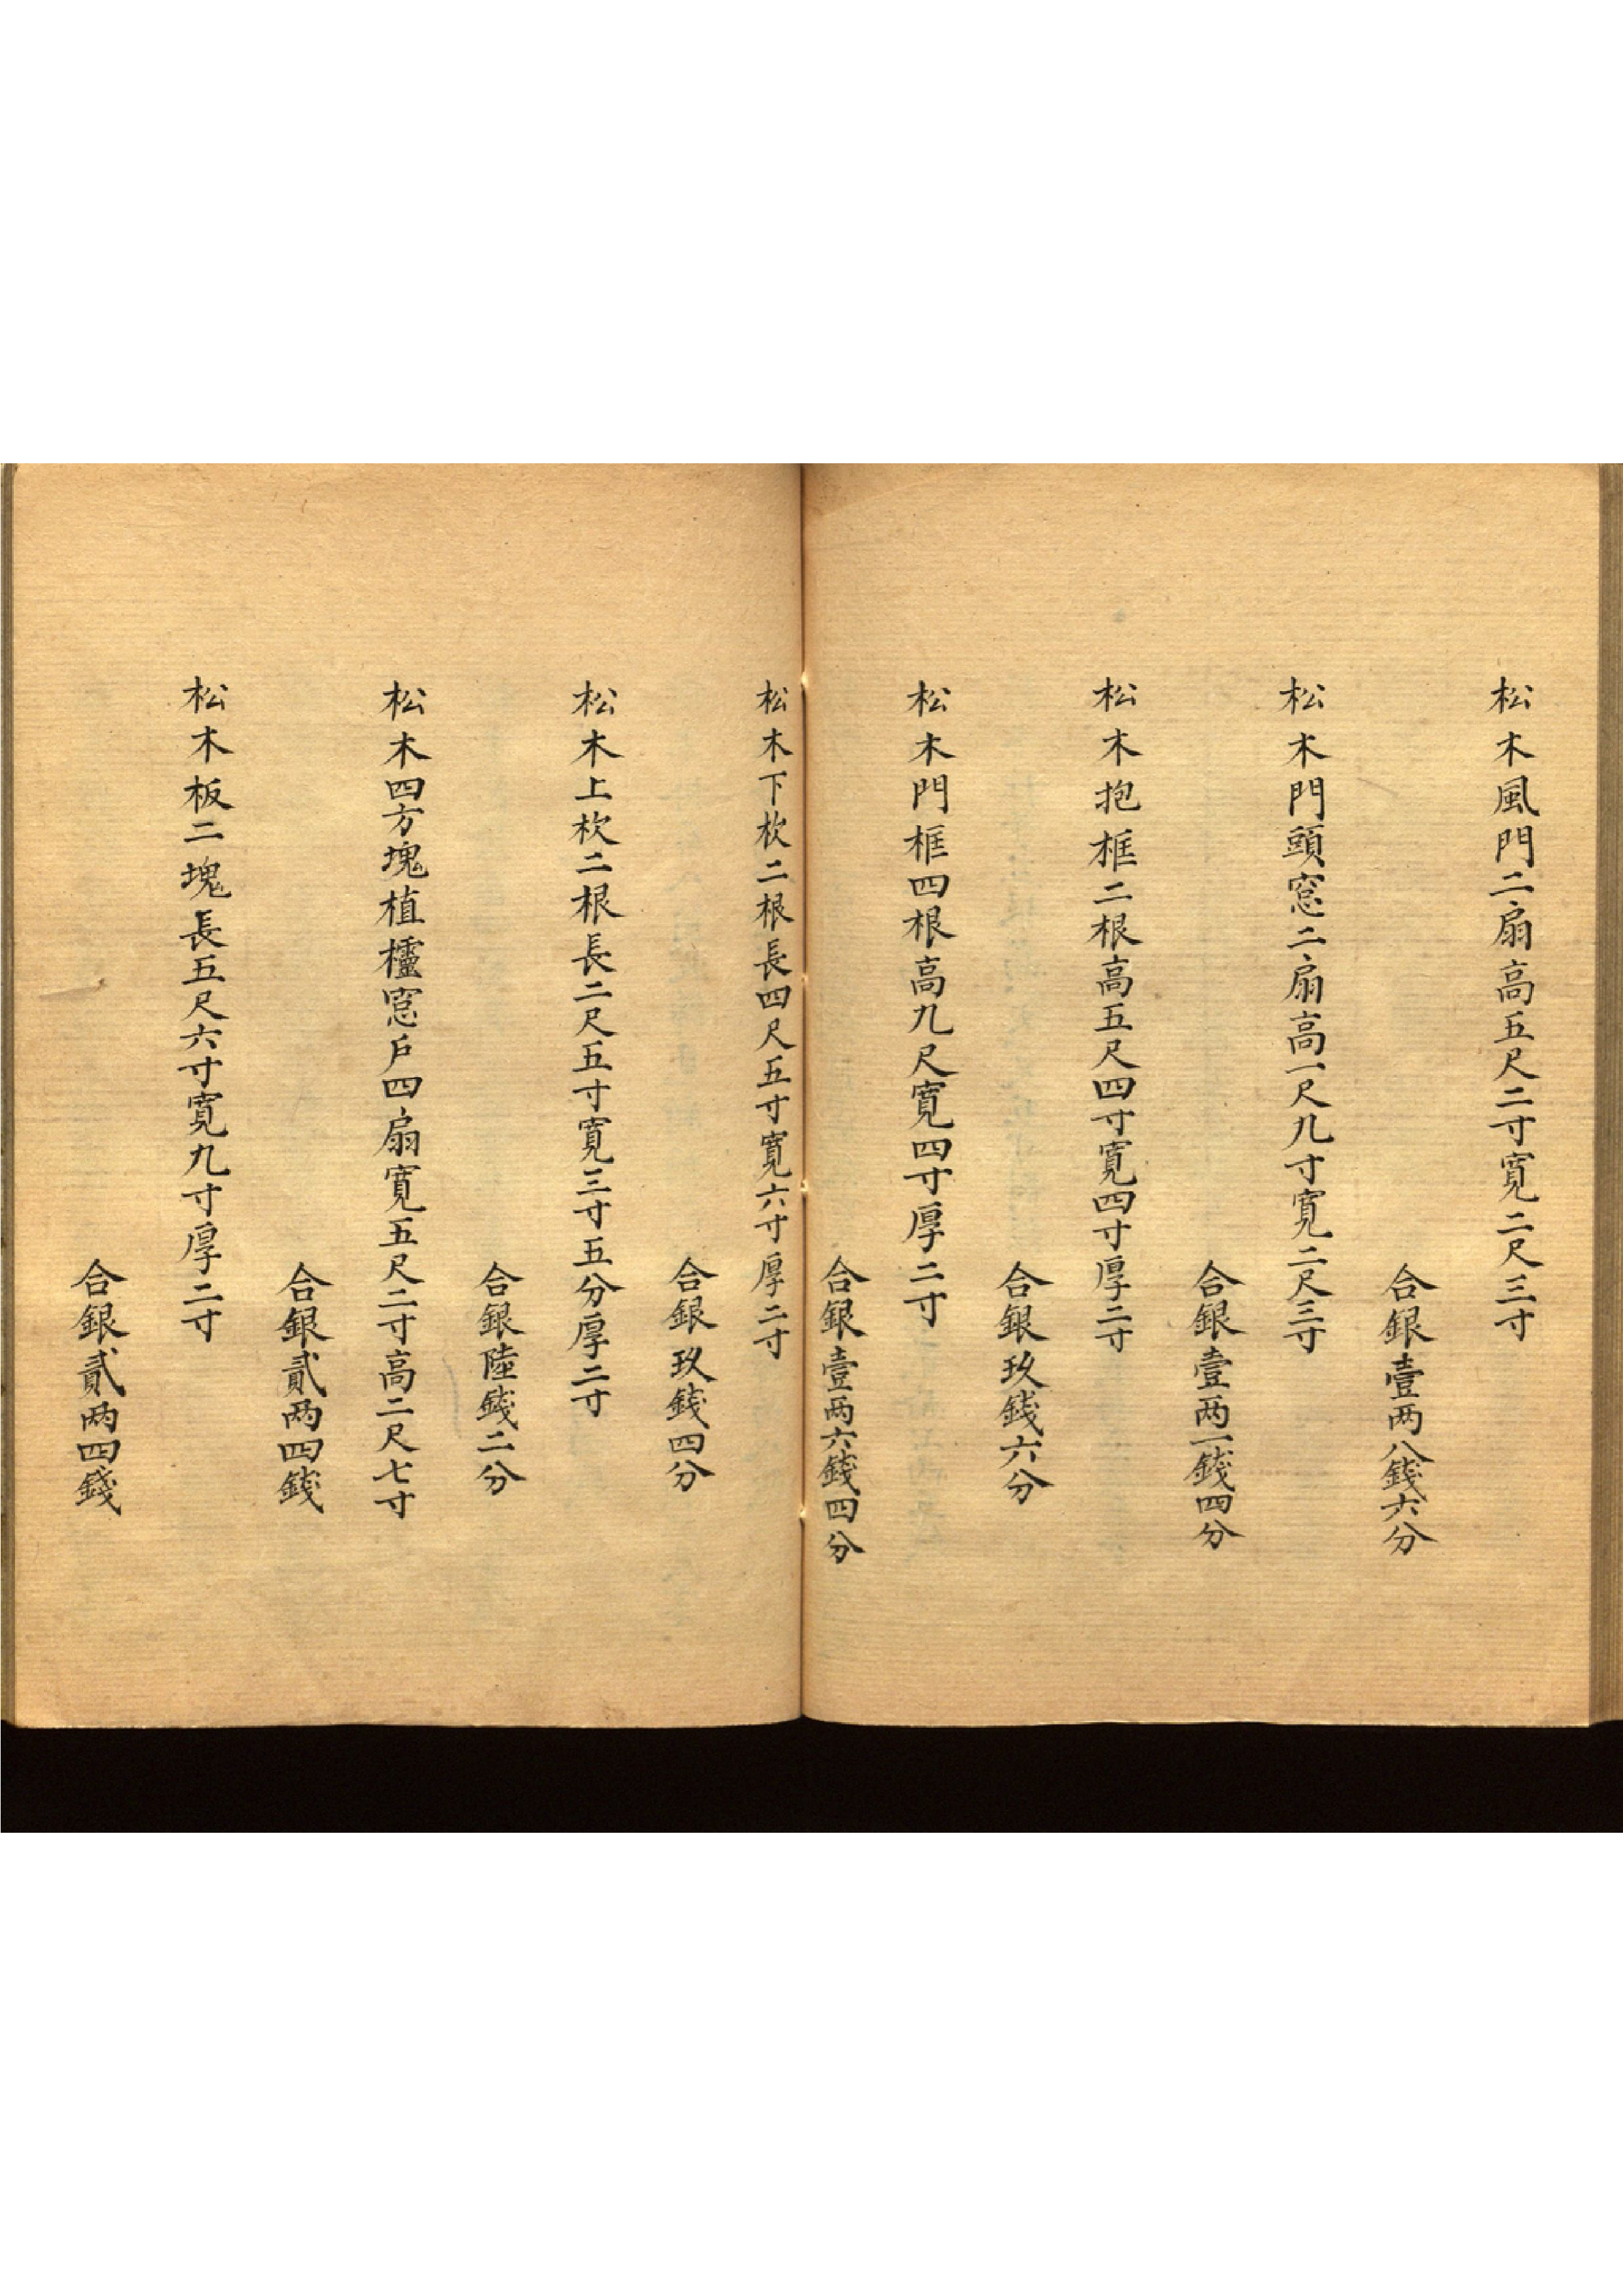 松木風門二扇高五尺二寸寛二尺三寸
合銀壹两八錢六分
松木門頭窓二扇高一尺九寸寛二尺三寸
合銀壹两一錢四分
松木抱框二根高五尺四寸寛四寸厚二寸
合銀玖錢六分
松木門框四根高九尺寛四寸厚二寸
合銀壹两六錢四分
松木下杴二根長四尺五寸寛六寸厚二寸
合銀玖錢四分
松木上杴二根長二尺五寸寛三寸五分厚二寸
合銀陸錢二分
松木四方塊植櫺窓户四扇寛五尺二寸高二尺七寸
合銀貳两四錢
松木板二塊長五尺六寸寛九寸厚二寸
合銀貳两四錢